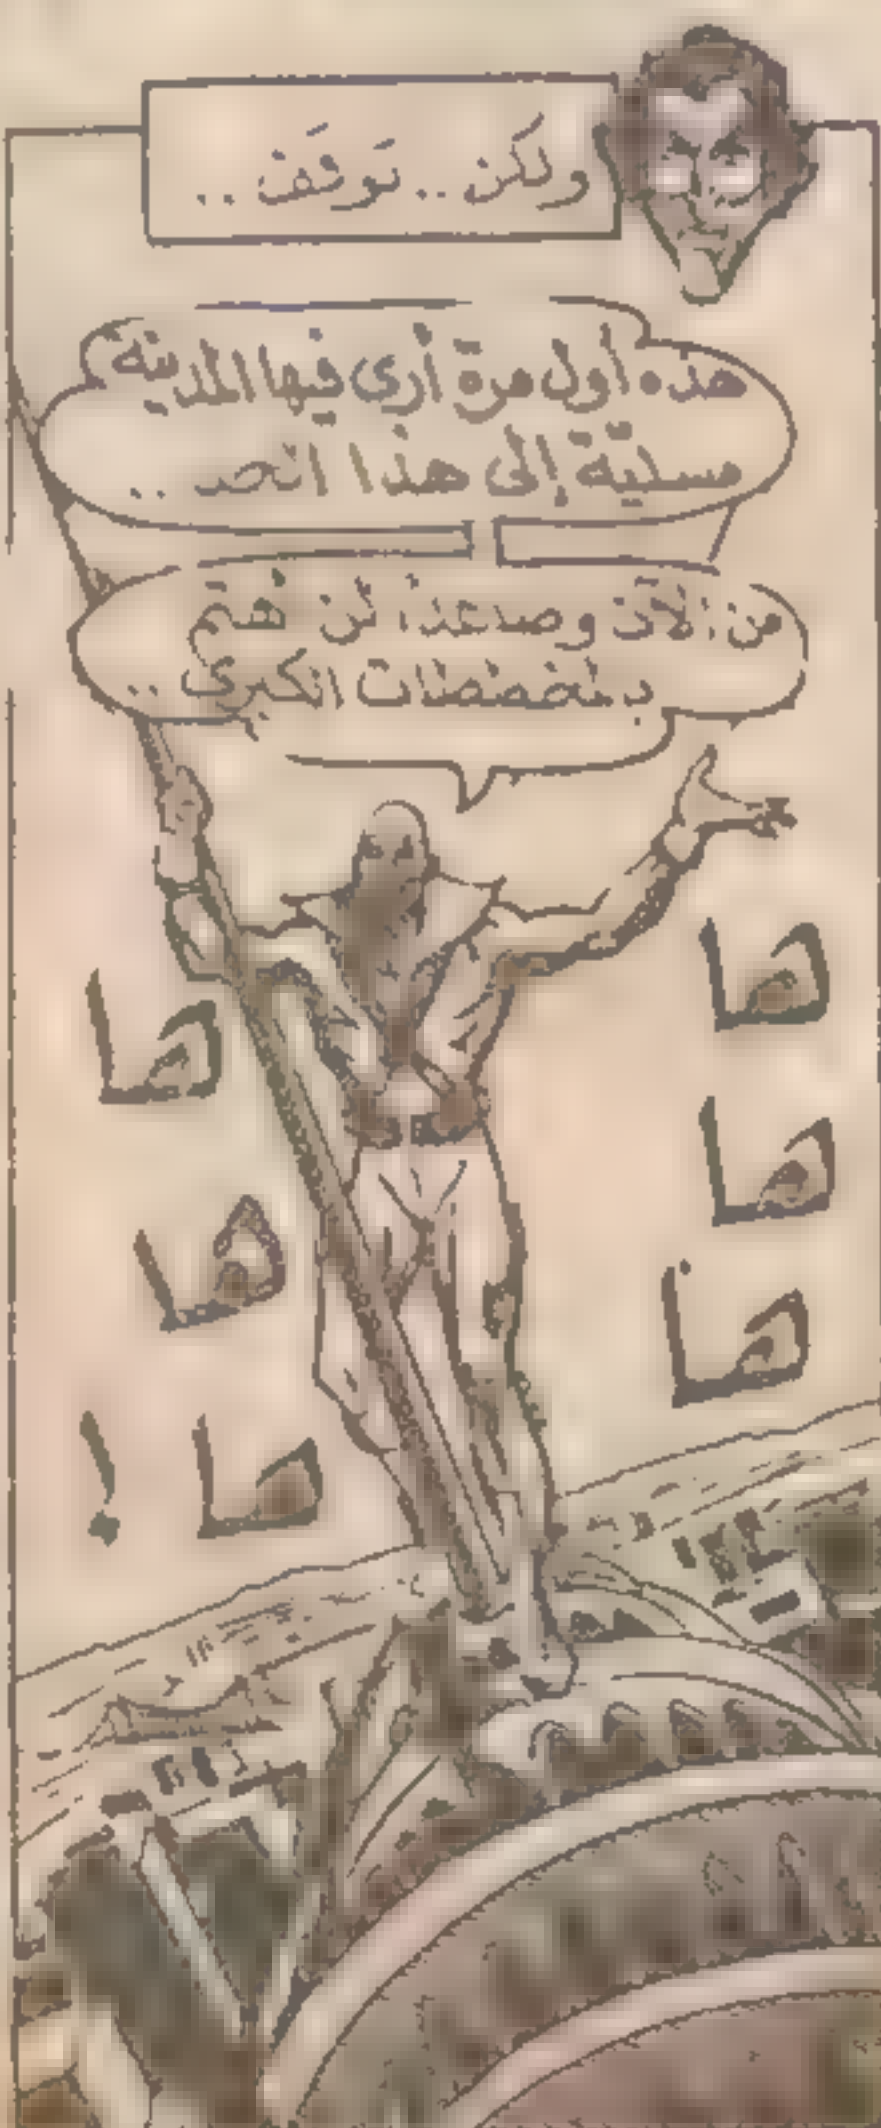 ولكن.. توقف..
هذه أول مرة أرى فيها المدينة
مسليّة إلى هذا الحد ..
من الآن وصاعداً، لن أهتم
بالمخططات الكبرى ..
ها
ها
ها
ها
ها
ها !